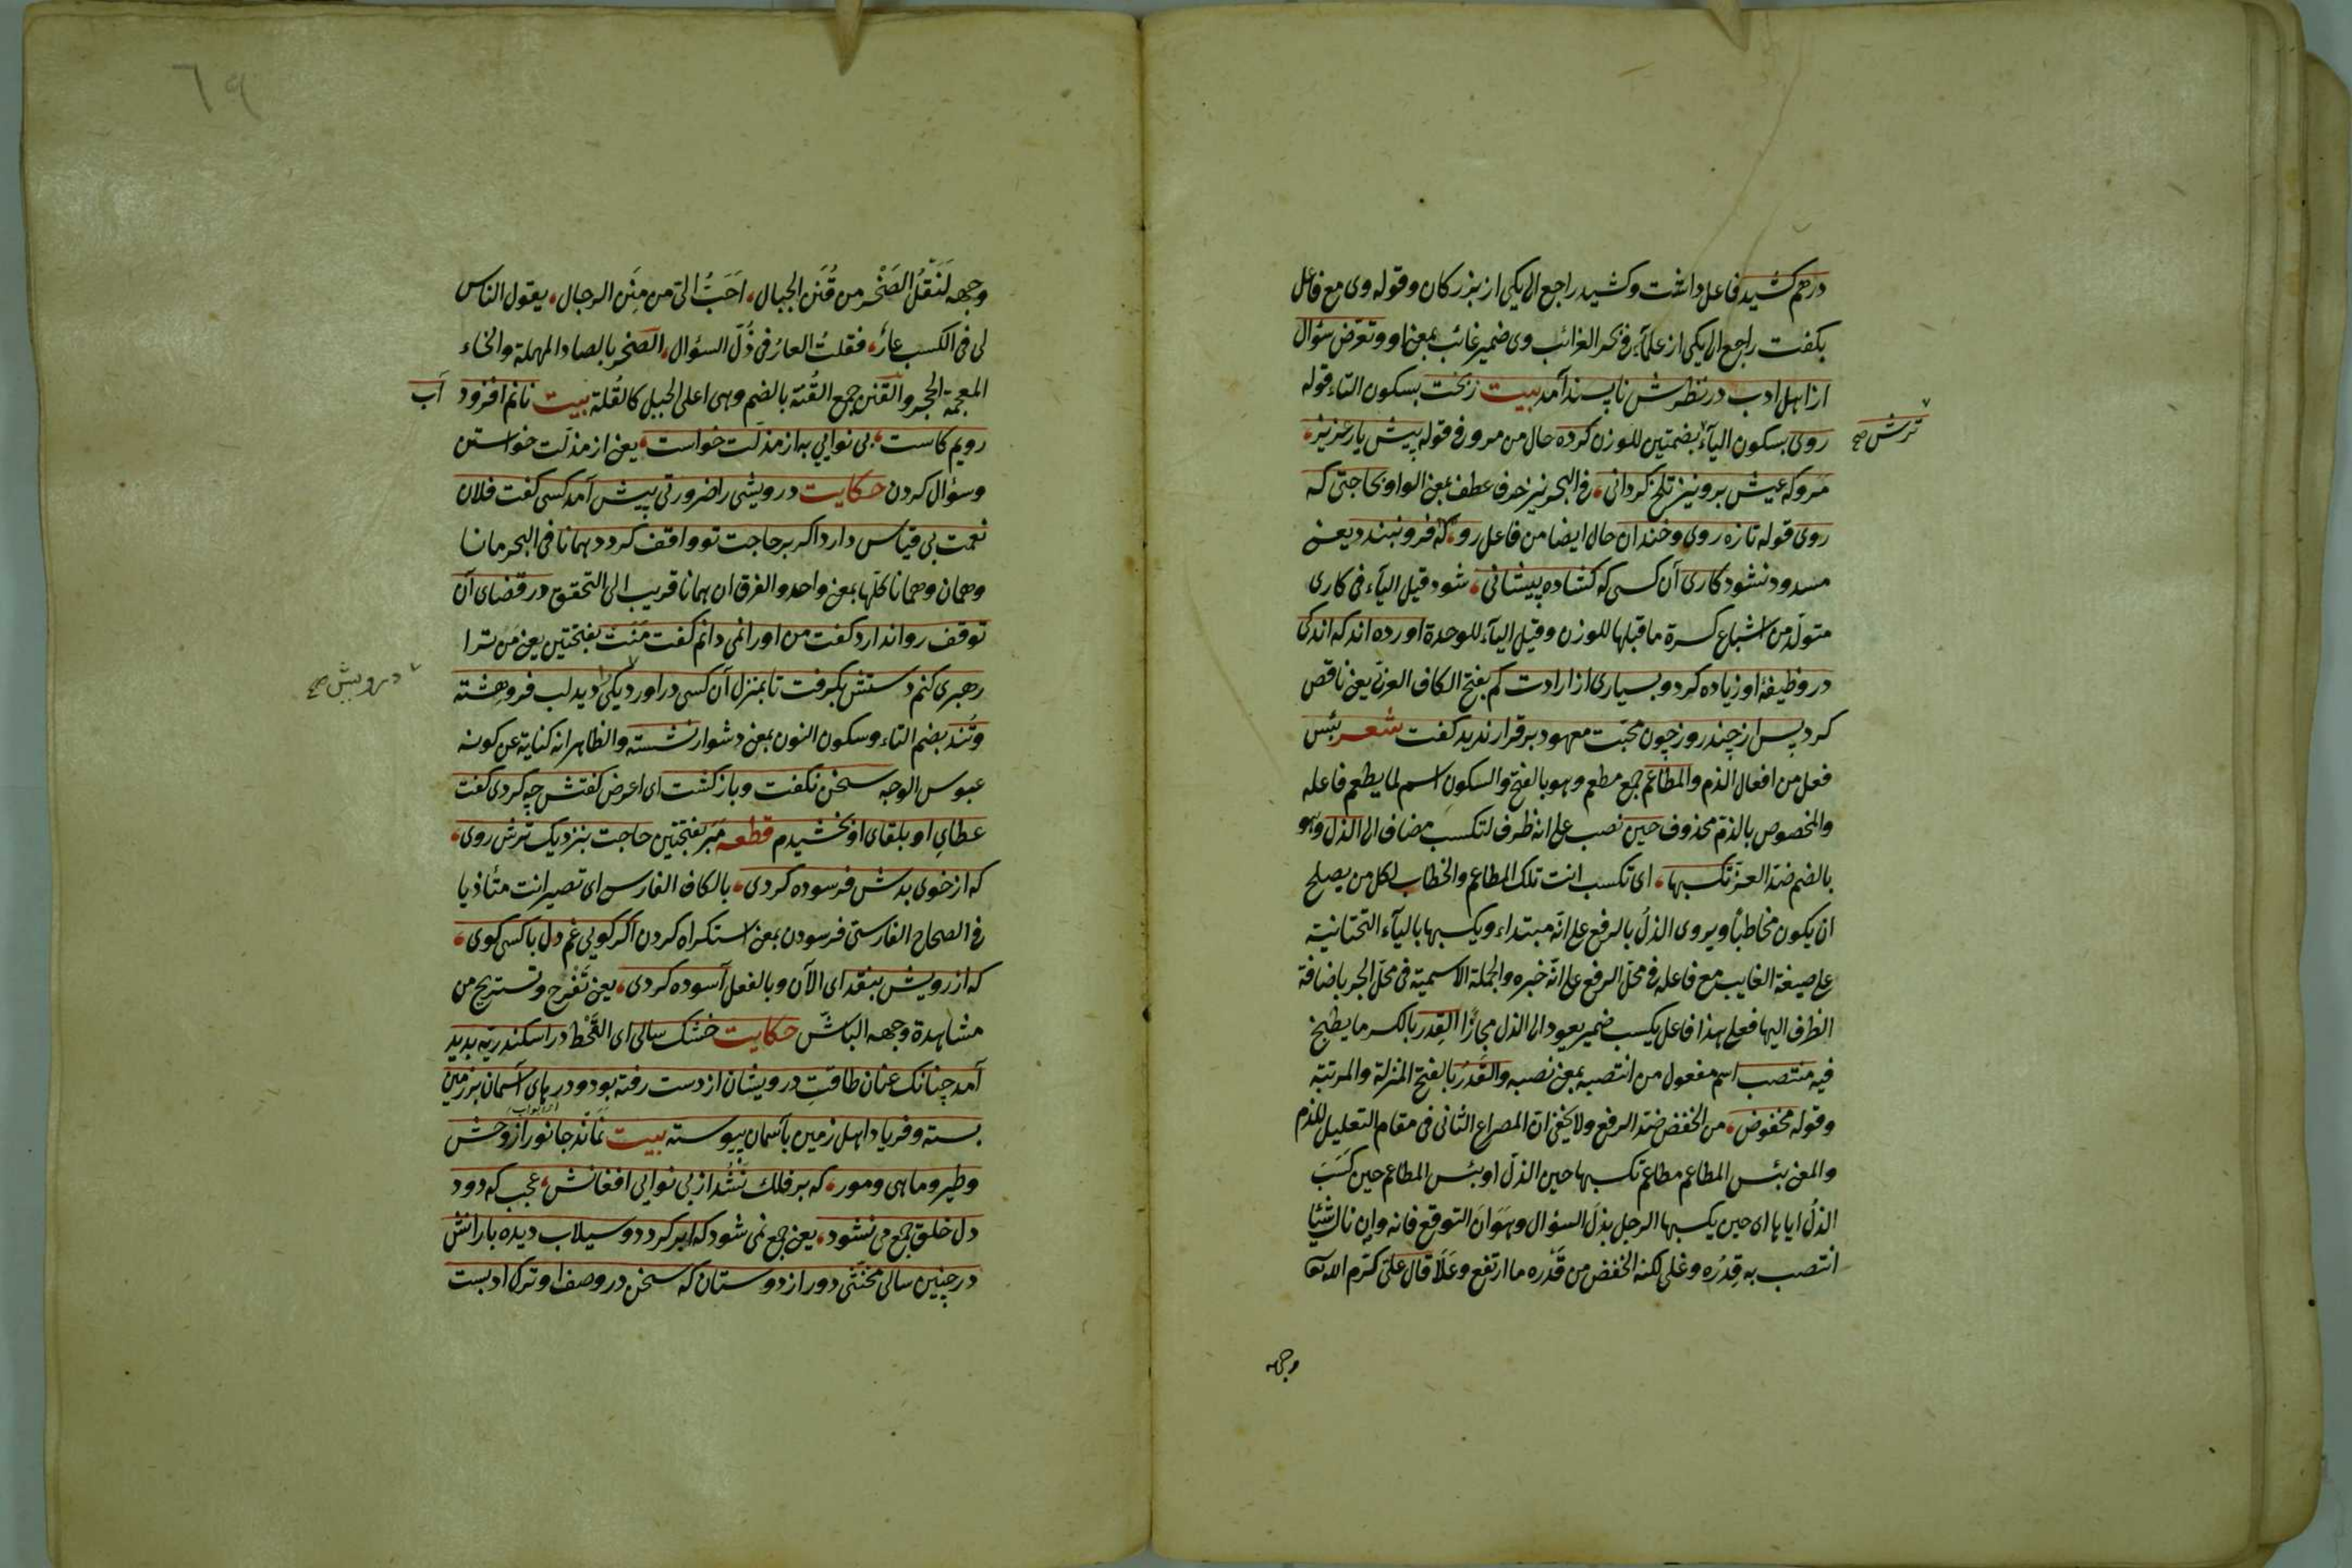 درهم كشيد فاعل داشت وكشيد راجع الى يكى از بزركان وقوله وى مع فاعل
بكفت راجع الى يكى از علماء فى بحر الغرائب وى ضمير غائب بمعنى او وتعرض سؤال
از اهل ادب در نظرش ناپسند آمد بيت ز بخت بسكون التاء قوله
روى بسكون الياء بضمتين للوزن كرده حال من مرو وفى قوله پيش يار عزيز
ترش صح
مرو كه عيش برو نيز تلخ كردانى فى البحر نيز حرف عطف بمعنى الواو بحاجتى كه
روى قوله تازه روى وخندان حال ايضا من فاعل رو كه فرو نبندد يعنى
مسدود نشود كارى آن كسى كه كشاده پيشانى شود قيل الياء فى كارى
متولد من اشباع كسرة ما قبلها للوزن وقيل الياء للوحدة اورده اند كه اندكى
در وظيفۀ او زياده كرد وبسيارى از ارادت كم بفتح الكاف العربى يعنى ناقص
كرد پس از چند روز چون محبت معهود برقرار نديد كفت شعر بئس
فعل من افعال الذم والمطاعم جمع مطعم وهو بالفتح والسكون اسم لما يطعم فاعله
والمخصوص بالذم محذوف حين نصب على انه ظرف لتكسب مضاف الى الذل وهو
بالضم ضد العز تكسبها اى تكسب انت تلك المطاعم والخطاب لكل من يصلح
ان يكون مخاطبا ويروى الذل بالرفع على انه مبتداء ويكسبها بالياء التحتانية
على صيغة الغايب مع فاعله فى محل الرفع على انه خبره والجملة الاسمية فى محل الجر باضافة
الظرف اليها فعلى هذا فاعل يكسب ضمير يعود الى الذل مجازا القدر بالكسر ما يطبخ
فيه منتصب اسم مفعول من انتصبه بمعنى نصبه والقدر بالفتح المنزلة والمرتبة
وقوله مخفوض من الخفض ضد الرفع ولا يخفى ان المصراع الثانى فى مقام التعليل للذم
والمعنى بئس المطاعم مطاعم تكسبها حين الذل او بئس المطاعم حين كسب
الذل اياها اى حين يكسبها الرجل بذل السؤال وهوان التوقع فانه وان نال شيئا
انتصب به قدره وغلى لكنه انخفض من قدره ما ارتفع وعلا قال على كرم الله تعا
وجهه
وجهه لنقل الصخر من قنن الجبال احب الى من منن الرجال يقول الناس
لى فى الكسب عار فقلت العار فى ذل السؤال الصخر بالصاد المهملة والخاء
المعجمة الحجر والقنن جمع القنة بالضم وهى اعلى الجبل كالقلة بيت نانم افزود آب
رويم كاست بى نوايى به از مذلت خواست يعنى از مذلت خواستن
وسؤال كردن حكايت درويشى را ضرورتى پيش آمد كسى كفت فلان
نعمت بى قياس دارد اكر بر حاجت تو واقف كردد همانا فى البحر مانا
وهمان وهمانا كلها بمعنى واحد والفرق ان همانا قريب الى التحقق در قضاى آن
توقف روا ندارد كفت من او را نمى دانم كفت منت بفتحتين يعنى من ترا
رهبرى كنم دستش بكرفت تا بمنزل آن كسى در اورد يكى ديد لب فروهشته
درويش صح
وتند بضم التاء وسكون النون بمعنى دشوار نشسته والظاهر انه كناية عن كونه
عبوس الوجه سخن نكفت وباز كشت اى اعرض كفتش چه كردى كفت
عطاى او بلقاى او بخشيدم قطعه مبر بفتحتين حاجت بنزديك ترش روى
كه از خوى بدش فرسوده كردى بالكاف الفارسى اى تصير انت متأذيا
فى الصحاح الفارسى فرسودن بمعنى استكراه كردن اكر كويى غم دل با كسى كوى
كه از رويش بنقد اى الآن وبالفعل آسوده كردى يعنى تفرح وتستريح من
مشاهدة وجهه الباش حكايت خشك سالى اى القحط در اسكندريه پديد
آمد چنانك عنان طاقت درويشان از دست رفته بود ودرهاى آسمان بر زمين
بسته وفرياد اهل زمين بآسمان پيوسته بيت نماند جانور از وحش
وطير وماهى ومور كه بر فلك نشد از بى نوايى افغانش عجب كه دود
دل خلق جمع مى نشود يعنى جمع نمى شود كه ابر كردد وسيلاب ديده بارانش
در چنين سالى مخنثى دور از دوستان كه سخن در وصف او ترك ادبست